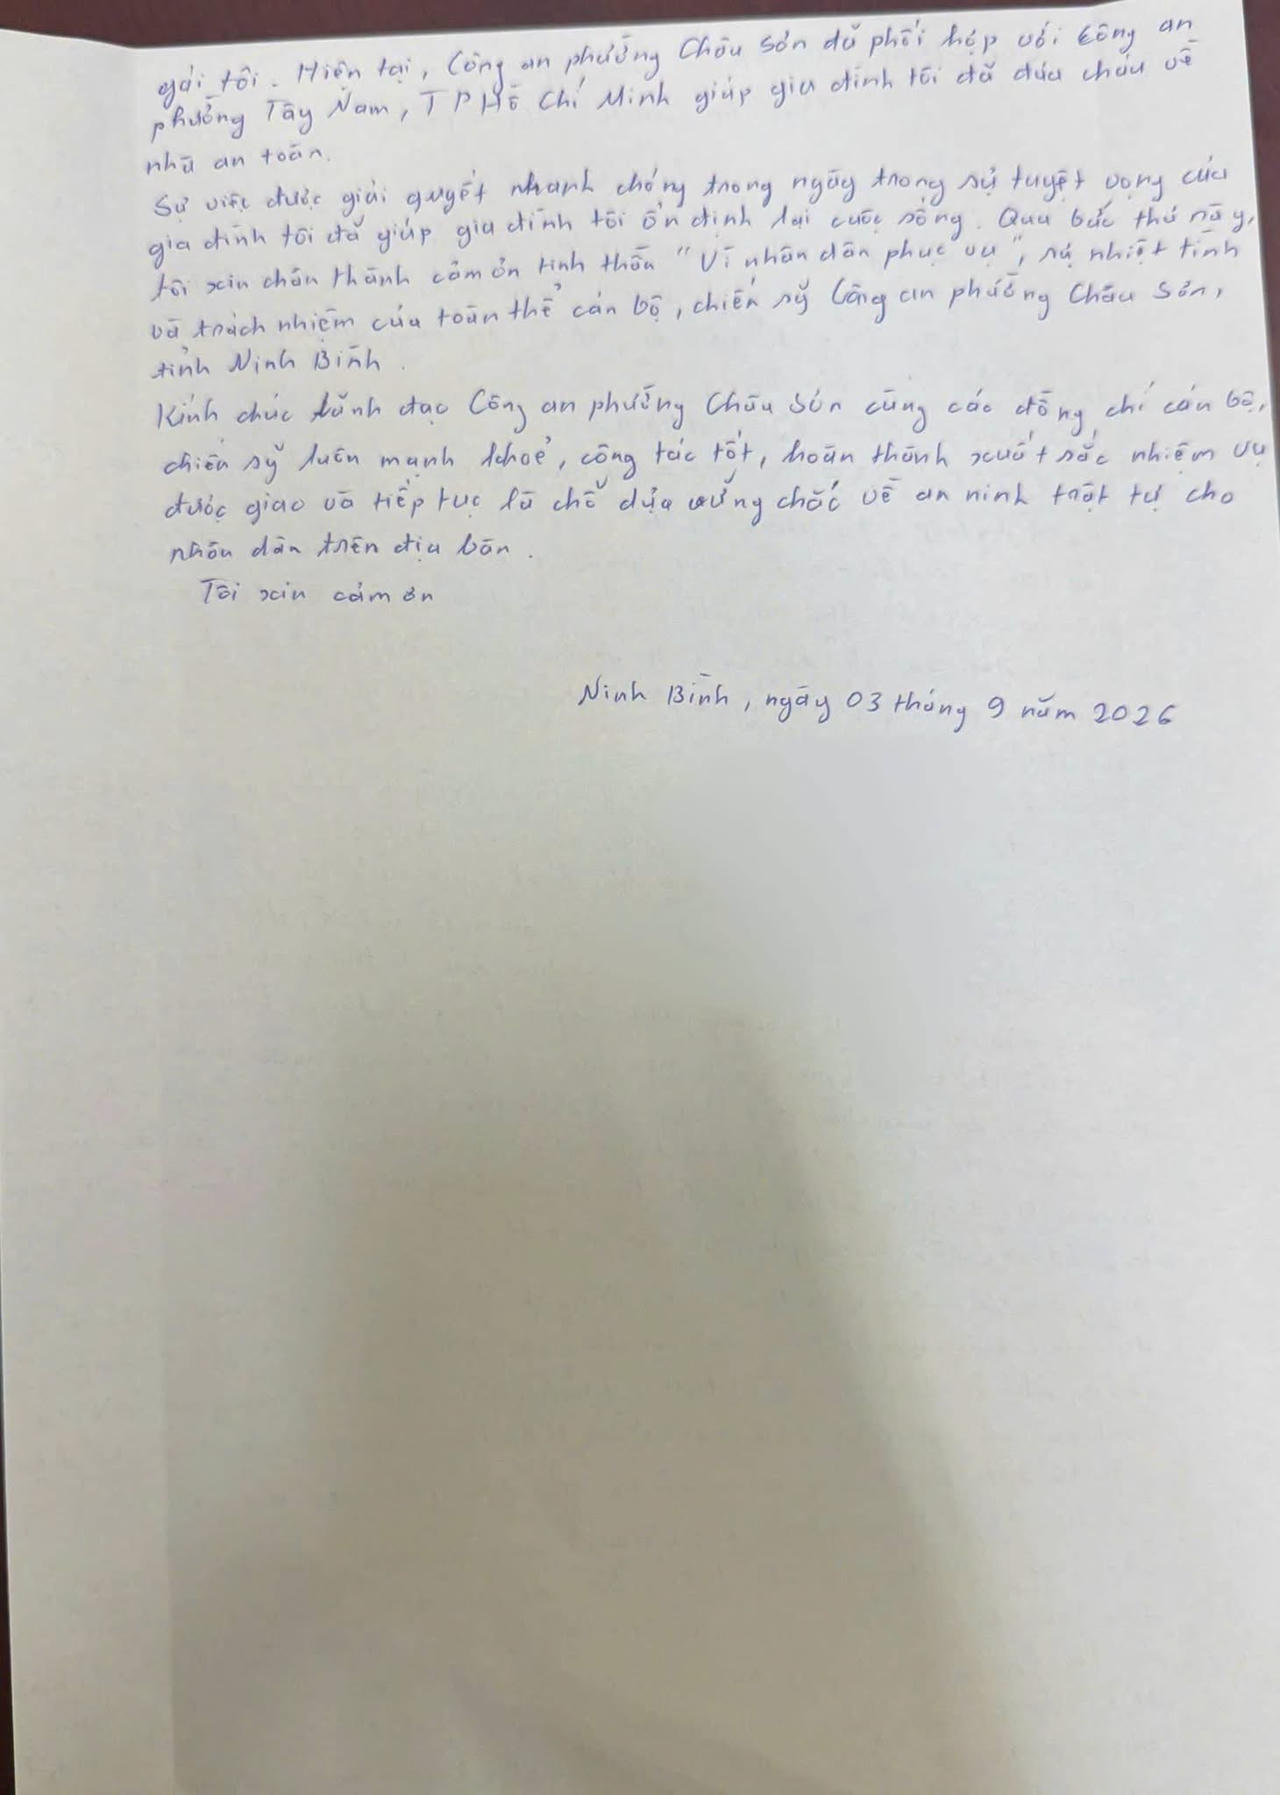 gái tôi. Hiện tại, Công an phường Châu Sơn đã phối hợp với Công an
phường Tây Nam, TP Hồ Chí Minh giúp gia đình tôi đã đưa cháu về
nhà an toàn.
Sự việc được giải quyết nhanh chóng trong ngày trong sự tuyệt vọng của
gia đình tôi đã giúp gia đình tôi ổn định lại cuộc sống. Qua bức thư này,
tôi xin chân thành cảm ơn tinh thần "Vì nhân dân phục vụ", sự nhiệt tình
và trách nhiệm của toàn thể cán bộ, chiến sỹ Công an phường Châu Sơn,
tỉnh Ninh Bình.
Kính chúc lãnh đạo Công an phường Châu Sơn cùng các đồng chí cán bộ,
chiến sỹ luôn mạnh khoẻ, công tác tốt, hoàn thành xuất sắc nhiệm vụ
được giao và tiếp tục là chỗ dựa vững chắc về an ninh trật tự cho
nhân dân trên địa bàn.
Tôi xin cảm ơn
Ninh Bình, ngày 03 tháng 9 năm 2026